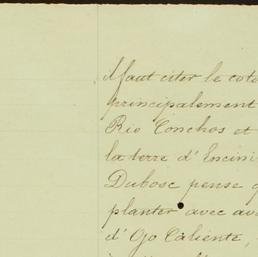 Il faut citer le coto
principalement
Rio Conchos et
la terre d'Encini
Dubosc pense q
planter avec av
d'Ojo Caliente,